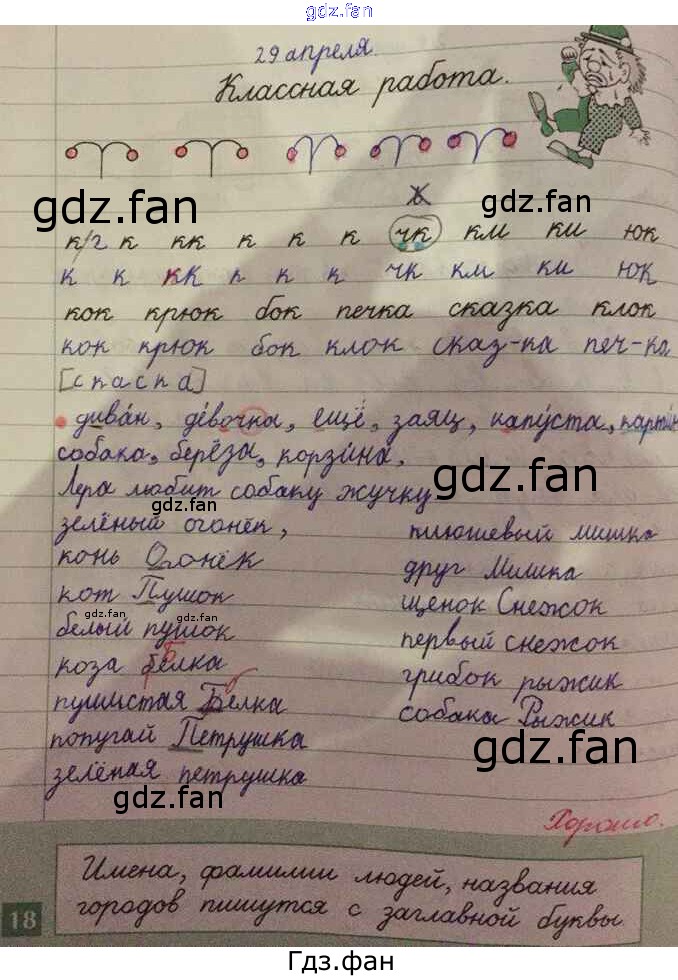 gdz.fan
29 апреля.
Классная работа.
gdz.fan gdz.fan
к/г к кк к к к чк км ки юк
к к кк к к к чк км ки юк
кок крюк бок печка сказка клок
кок крюк бок клок сказ-ка печ-ка
[с к а с к а]
диван, дéвочка, ещё, заяц, капýста,
собака, берёза, корзúна.
gdz.fan
Лера любит собаку жучку.
gdz.fan
зелёный огонёк, плюшевый мишка
конь Огонёк друг Мишка
кот Пушок щенок Снежок
gdz.fan gdz.fan
белый пушок первый снежок
коза белка грибок рыжик
пушистая Белка собака Рыжик
попугай Петрушка
gdz.fan
зелёная петрушка
gdz.fan
Хорошо.
Имена, фамилии людей, названия
городов пишутся с заглавной буквы
18
Гдз.фан